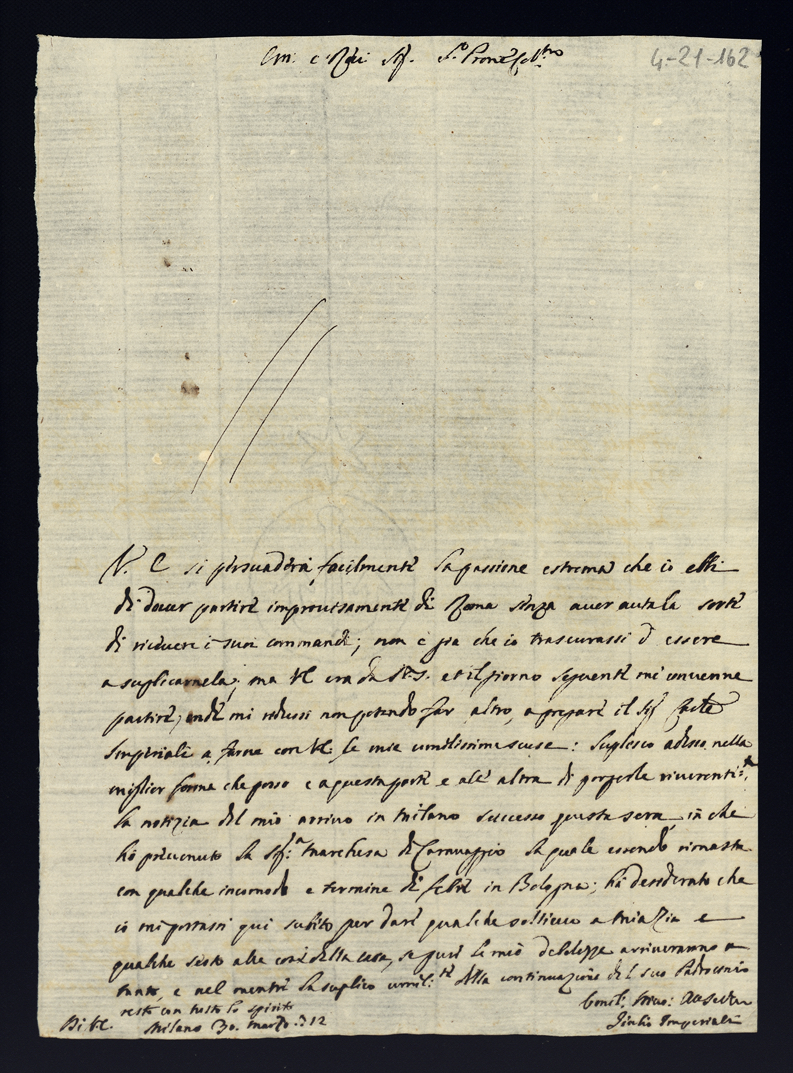 4-21-162
Em. e Rev. Sig. Sig. Prone
V. E. si persuaderà facilmente la passione estrema che io ebbi
di dover partire improvisamente di Roma senza aver avuta la sorte
di ricevere i suoi commandi; non è gia che io trascurassi d'essere
a suplicarnela; ma VE era da S.S. et il giorno seguente mi convenne
partire, onde mi ridussi non potendo far altro, a pregare il Sig.
Imperiali a farne con VE le mie umilissime scuse: Suplisco adesso nella
miglior forma che posso e a questa parte e all' altra di porgerle riverentis.te
la notizia del mio arrivo in Milano successo questa sera, in che
hò prevenuto la Sig.a Marchesa di Caravaggio la quale essendo rimasta
con qualche incomodo e termine di febre in Bologna; hà desiderato che
io mi portassi quì subito per dare qualche sollievo a mia Zia e
qualche sesto alle cose della casa, se pure le mie debolezze arriveranno a
tanto, e nel mentre la suplico umil.te della continuazione del suo Padrocinio
resto con tutto lo spirito
Di VE. Milano 30. Marzo 712
Giulio Imperiali